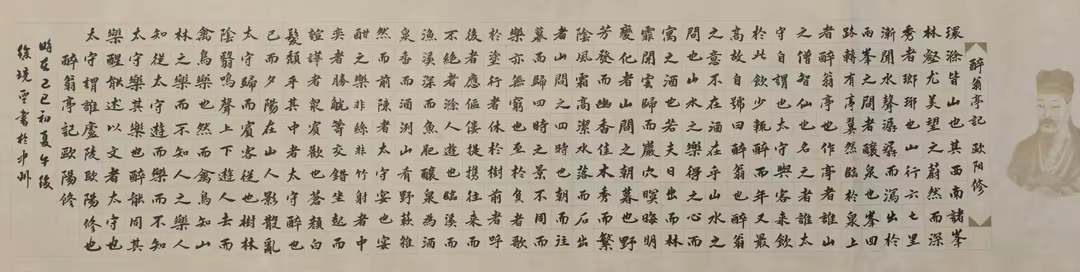 醉翁亭記 歐陽修
環滁皆山也其西南諸峯
林壑尤美望之蔚然而深
秀者瑯琊也山行六七里
漸聞水聲潺潺而瀉出於
兩峯之間者釀泉也峯回
路轉有亭翼然臨於泉上
者醉翁亭也作亭者誰山
之僧智仙也名之者誰太
守自謂也太守與客來飲
於此飲少輒醉而年又最
高故自號曰醉翁也醉翁
之意不在酒在乎山水之
間也山水之樂得之心而
寓之酒也若夫日出而林
霏開雲歸而巖穴暝晦明
變化者山間之朝暮也野
芳發而幽香佳木秀而繁
陰風霜高潔水落而石出
者山間之四時也朝而往
暮而歸四時之景不同而
樂亦無窮也至於負者歌
於塗行者休於樹前者呼
後者應傴僂提攜往來而
不絕者滁人遊也臨溪而
漁溪深而魚肥釀泉為酒
泉香而酒洌山肴野蔌雜
然而前陳者太守宴也宴
酣之樂非絲非竹射者中
奕者勝觥籌交錯坐起而
諠譁者眾賓歡也蒼顏白
髮頹乎其中者太守醉也
已而夕陽在山人影散亂
太守歸而賓客從也樹林
陰翳鳴聲上下遊人去而
禽鳥樂也然而禽鳥知山
林之樂而不知人之樂人
知從太守遊而樂而不知
太守之樂其樂也醉能同其
樂醒能述以文者太守也
太守謂誰廬陵歐陽修也
醉翁亭記歐陽修
時在乙巳初夏午後
徐境書於中州